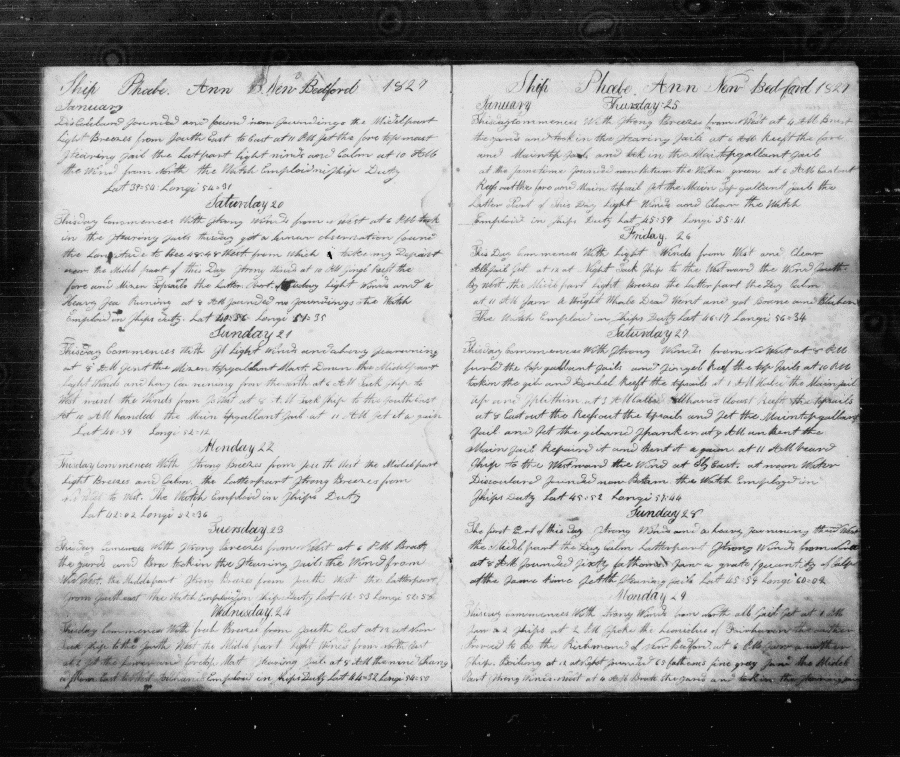 Ship Phebe. Ann B. New Bedford 1829
January
Discoloured sounded and found now soundings the Midel part
Light Breezes from South East to East at 11 P.M. set the fore top mast
Stearing Sail the Latpart Light winds and Calm at 10 AM
the Wind from North the Watch Emploid in Ship Duty
Lat 39=54 Longi 54=31
Saturday 20
This day Commences With Strong Winds from West at 6 PM took
in the Stearing Sails this day got a Lunar observation found
the Longitude to bee 48:48 West from which I take my Depart
the Midel part of this Day Strong Winds at 10 PM Reeft the
fore and Mizen topsails the Latter Part Light Winds and a
heavy Sea Runing at 8 AM sounded no Soundings The Watch
Emploid in Ships Duty. Lat 40=56 Longi 51=35
Sunday 21
This day Commences With Light Winds and a heavy Sea running
at 8 PM Sent the Mizen topgallant Mast Down the Midel part
Light Winds and heavy Sea running from the North at 6 AM tack ship to
the Winds from West at 8 AM tack ship to the South East
At 10 AM handed the Main topgallant Sail at 11 AM set it a gain
Lat 40=39 Longi 52=12
Monday 22
This day Commences With Strong Breezes from South West the Midel part
Light Breezes and Calm. the Latter part Strong Breezes from
West. The Watch Emploid in Ships Duty
Lat 42=02 Longi 52=36
Tuersday 23
This day Comences With Strong Breezes from West at 6 PM Braft
the yards and took in the Stearing Sails the Wind from
West. the Midel part Strong Breeze from South West the Latter part
from South east the Watch Emploid in Ships Duty Lat 42=53 Longi 52=58
Wednesday 24
This day Commences With fresh Breezes from South East at
tack Ship to the South West the Midel part Light Winds from north East
at 2 set the fore top Mast Stearing Sail at 8 AM
Emploid in Ships Duty Lat 44=32 Longi
Ship Phebe. Ann New Bedford 1829
January Thursday 25
This day Commences With Strong Breezes from West at 4 AM Braft
the yards and took in the Stearing Sails at 6 AM Reeft the fore
and Maintop Sail, and took in the Maintopgallant Sail
at the same time sounded the Water green at 6 AM Cast out
Reef out the fore and Main topsail Set the Main Top gallant Sail the
Latter Part of this Day Light Winds and Clear the Watch
Emploid in Ships Duty Lat 45=59 Longi 55:41
Friday. 26
This Day Commences With Light Winds from West and Clear
All Sail Set at 12 at Night Tack Ship to the Westward the Wind South
by West the Midel part Light Breezes the Latter part the Day Calm
at 11 AM Saw a Wright Whale Dead Went and got Bone and Blubber
The Watch Emploid in Ships Duty Lat 46:17 Longi 56=34
Saturday 27
This day Commences With Strong Winds from West at 8 PM
furld the top gallant Sails and Singel Reeft the top Sails at 10 PM
taken the gib and Doubel Reeft the topsails at 1 AM the Main Sail
up and at 3 AM Close Reeft the topsails
at 8 Cast out the Reefs out the topsails and Set the Maintopgallant
Sail and Set the gib and Spanker at 9 AM unbent the
Main Sail Repaired it and Bent it a gain at 11 AM weard
Ship to the Westward the Wind at East. at noon Water
Discoulard Sounded now Botom the Watch Employd in
Ships Duty Lat 45=52 Longi 57:44
Sunday 28
The first Part of this Day Strong Winds and a heavy Sea running
the Midel part the Day Calm Latter part Strong Winds from
at 8 AM Sounded Sixty fathoms Saw a grate quantity of
at the Same time Set the Stearing Sails Lat 45=59 Longi 60=09
Monday 29
This day Commences With Strong Winds from North all Sail Set at 1 PM
Saw 2 Ships at 2 PM Spoke the Leonidas of Fairhaven the other
Proved to be the Richmond of New Bedford at 6 PM Saw another
Ship. at 12 at Night Sounded 65 fathoms fine gray Sand the Midel
Part Strong Winds West at 4 AM Braft the yards and took in the Stearing